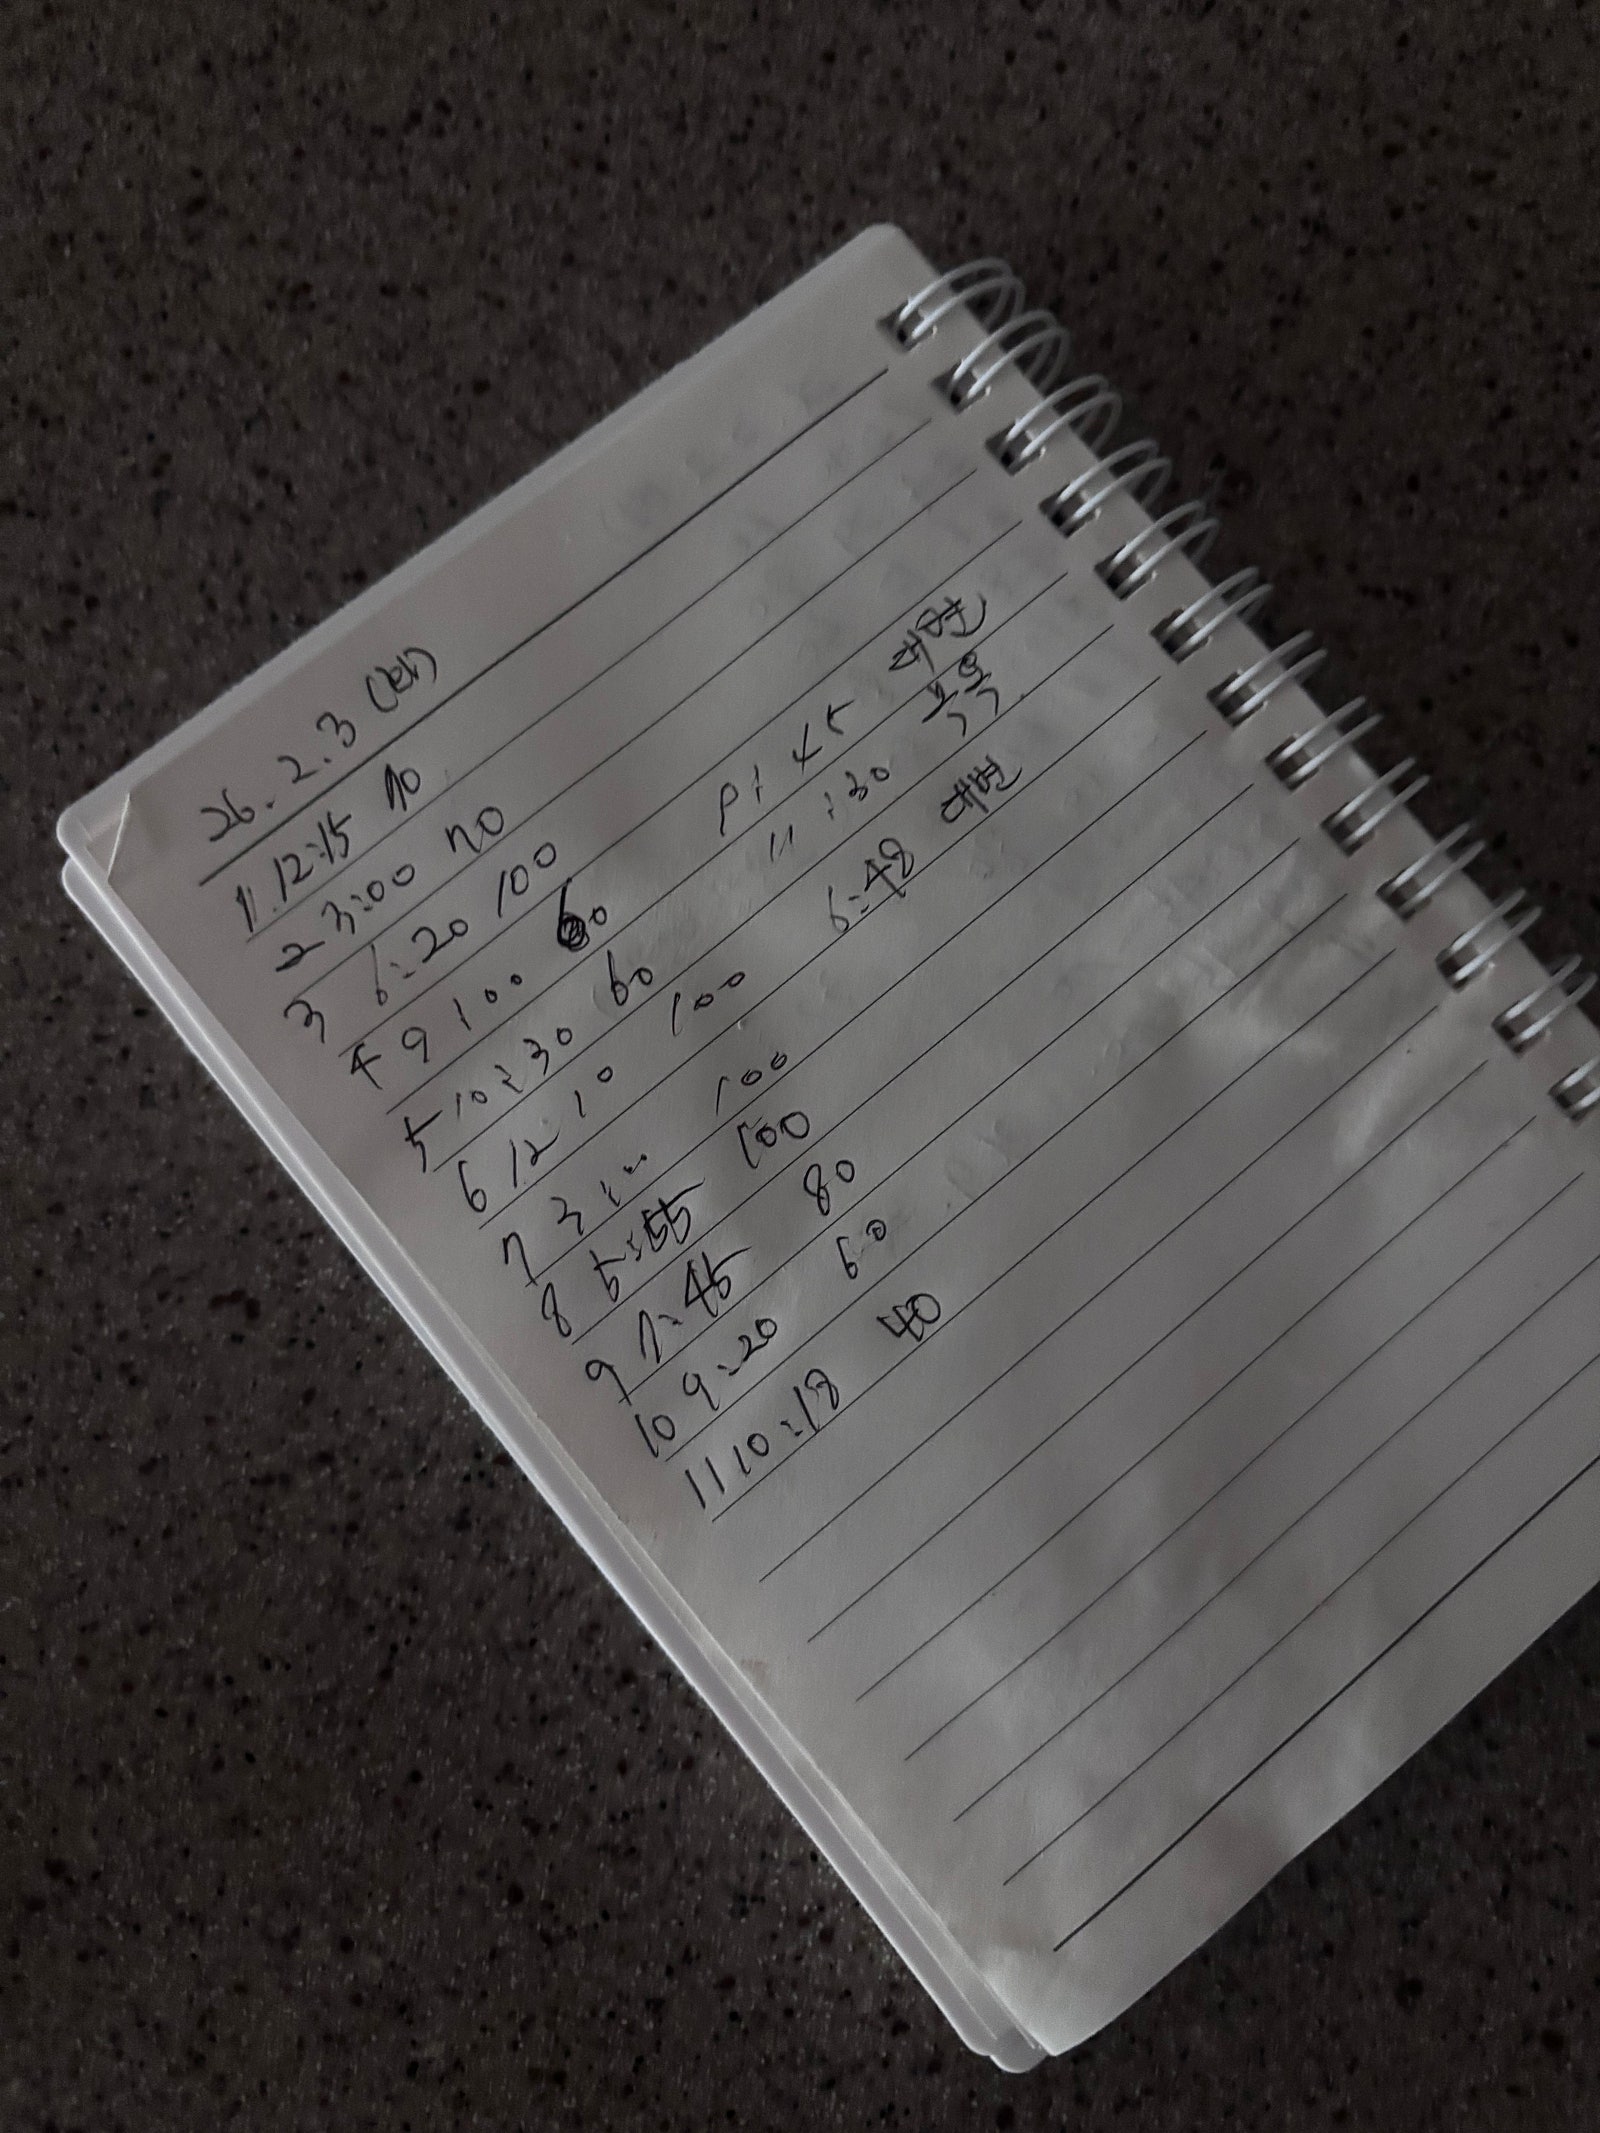 26. 2. 3 (화)
1. 12:15 70
2 3:00 70
3 6:20 100
4 9 100 60 9:45 대변
5 10:30 60 11:30 목욕
6 12:10 100 6:48 대변
7 3:00 100
8 5:55 100
9 7:45 80
10 9:20 60
11 10:18 40